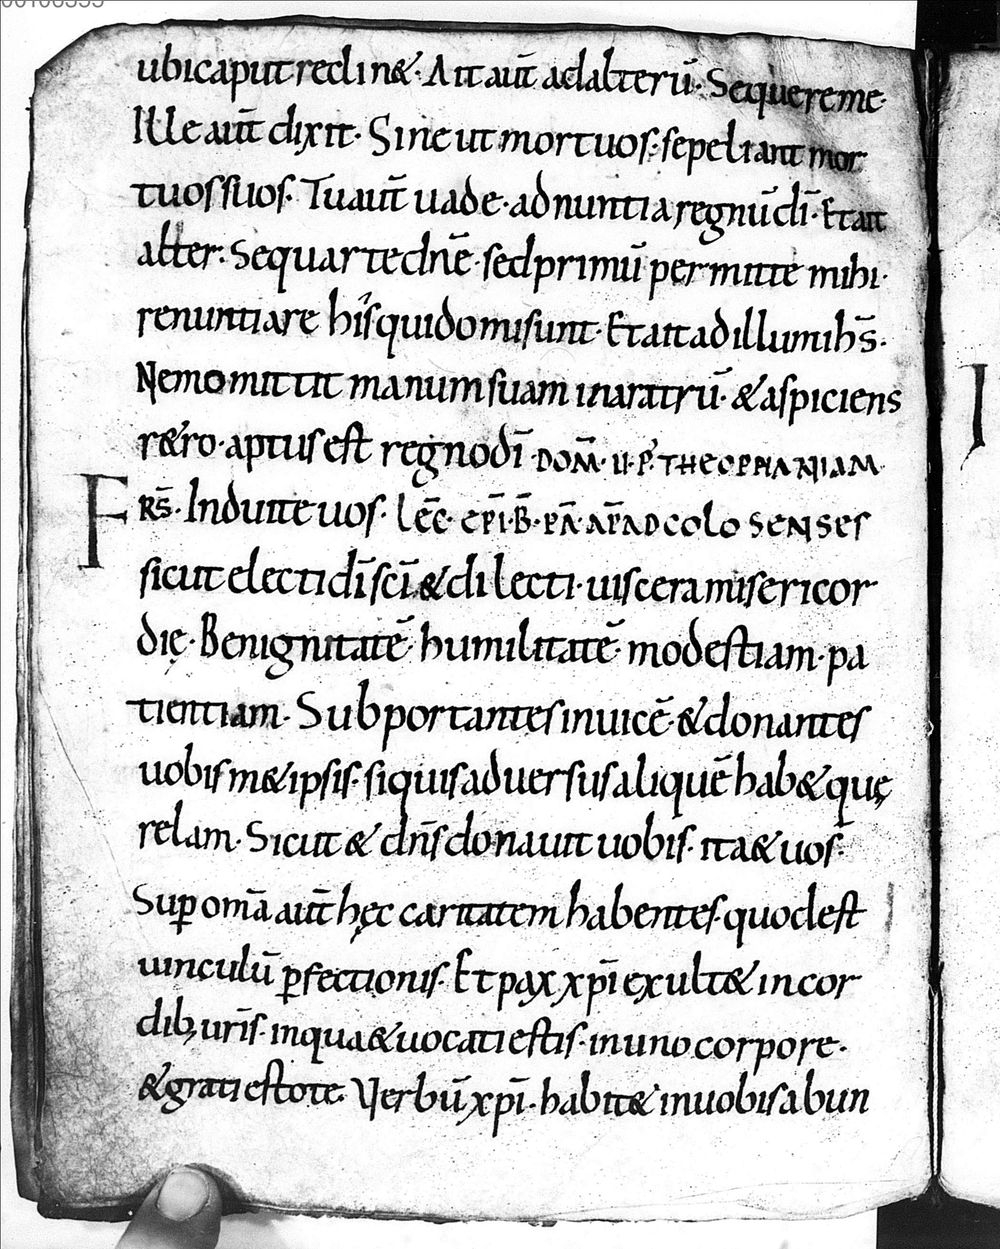 ubicaput reclin&. Ait aut̄ adalterū. Sequereme.
Ille aut̄ dixit. Sine ut mortuos. sepeliant mor
tuos suos. Tu aut̄ uade. adnuntia regnū dī. Et ait
alter. Sequar te dn̄e. sed primū permitte mihi.
renuntiare his qui domi sunt. Et ait ad illum ih̄s.
Nemo mittit manum suam in aratrū. & aspiciens
r&ro. aptus est regno dī DOM̄. II. P. THEOPHANIAM
FRS̄. Induite uos. LEC̄. EPĪ. B̄. PĀ. AP̄. AD COLOSENSES
sicut electi dī sc̄i & dilecti. uiscera misericor
dię. Benignitatē. humilitatē. modestiam. pa
tientiam. Subportantes inuicē. & donantes
uobism&ipsis. siquis aduersus aliquē hab& quę
relam. Sicut & dn̄s donauit uobis. ita & uos.
Sup om̄a aut̄ hęc caritatem habentes. quod est
uinculū pfectionis. Et pax xp̄i exult& in cor
dib; ur̄is. in qua & uocati estis. in uno corpore.
& grati estote. Verbū xp̄i. habit& in uobis abun